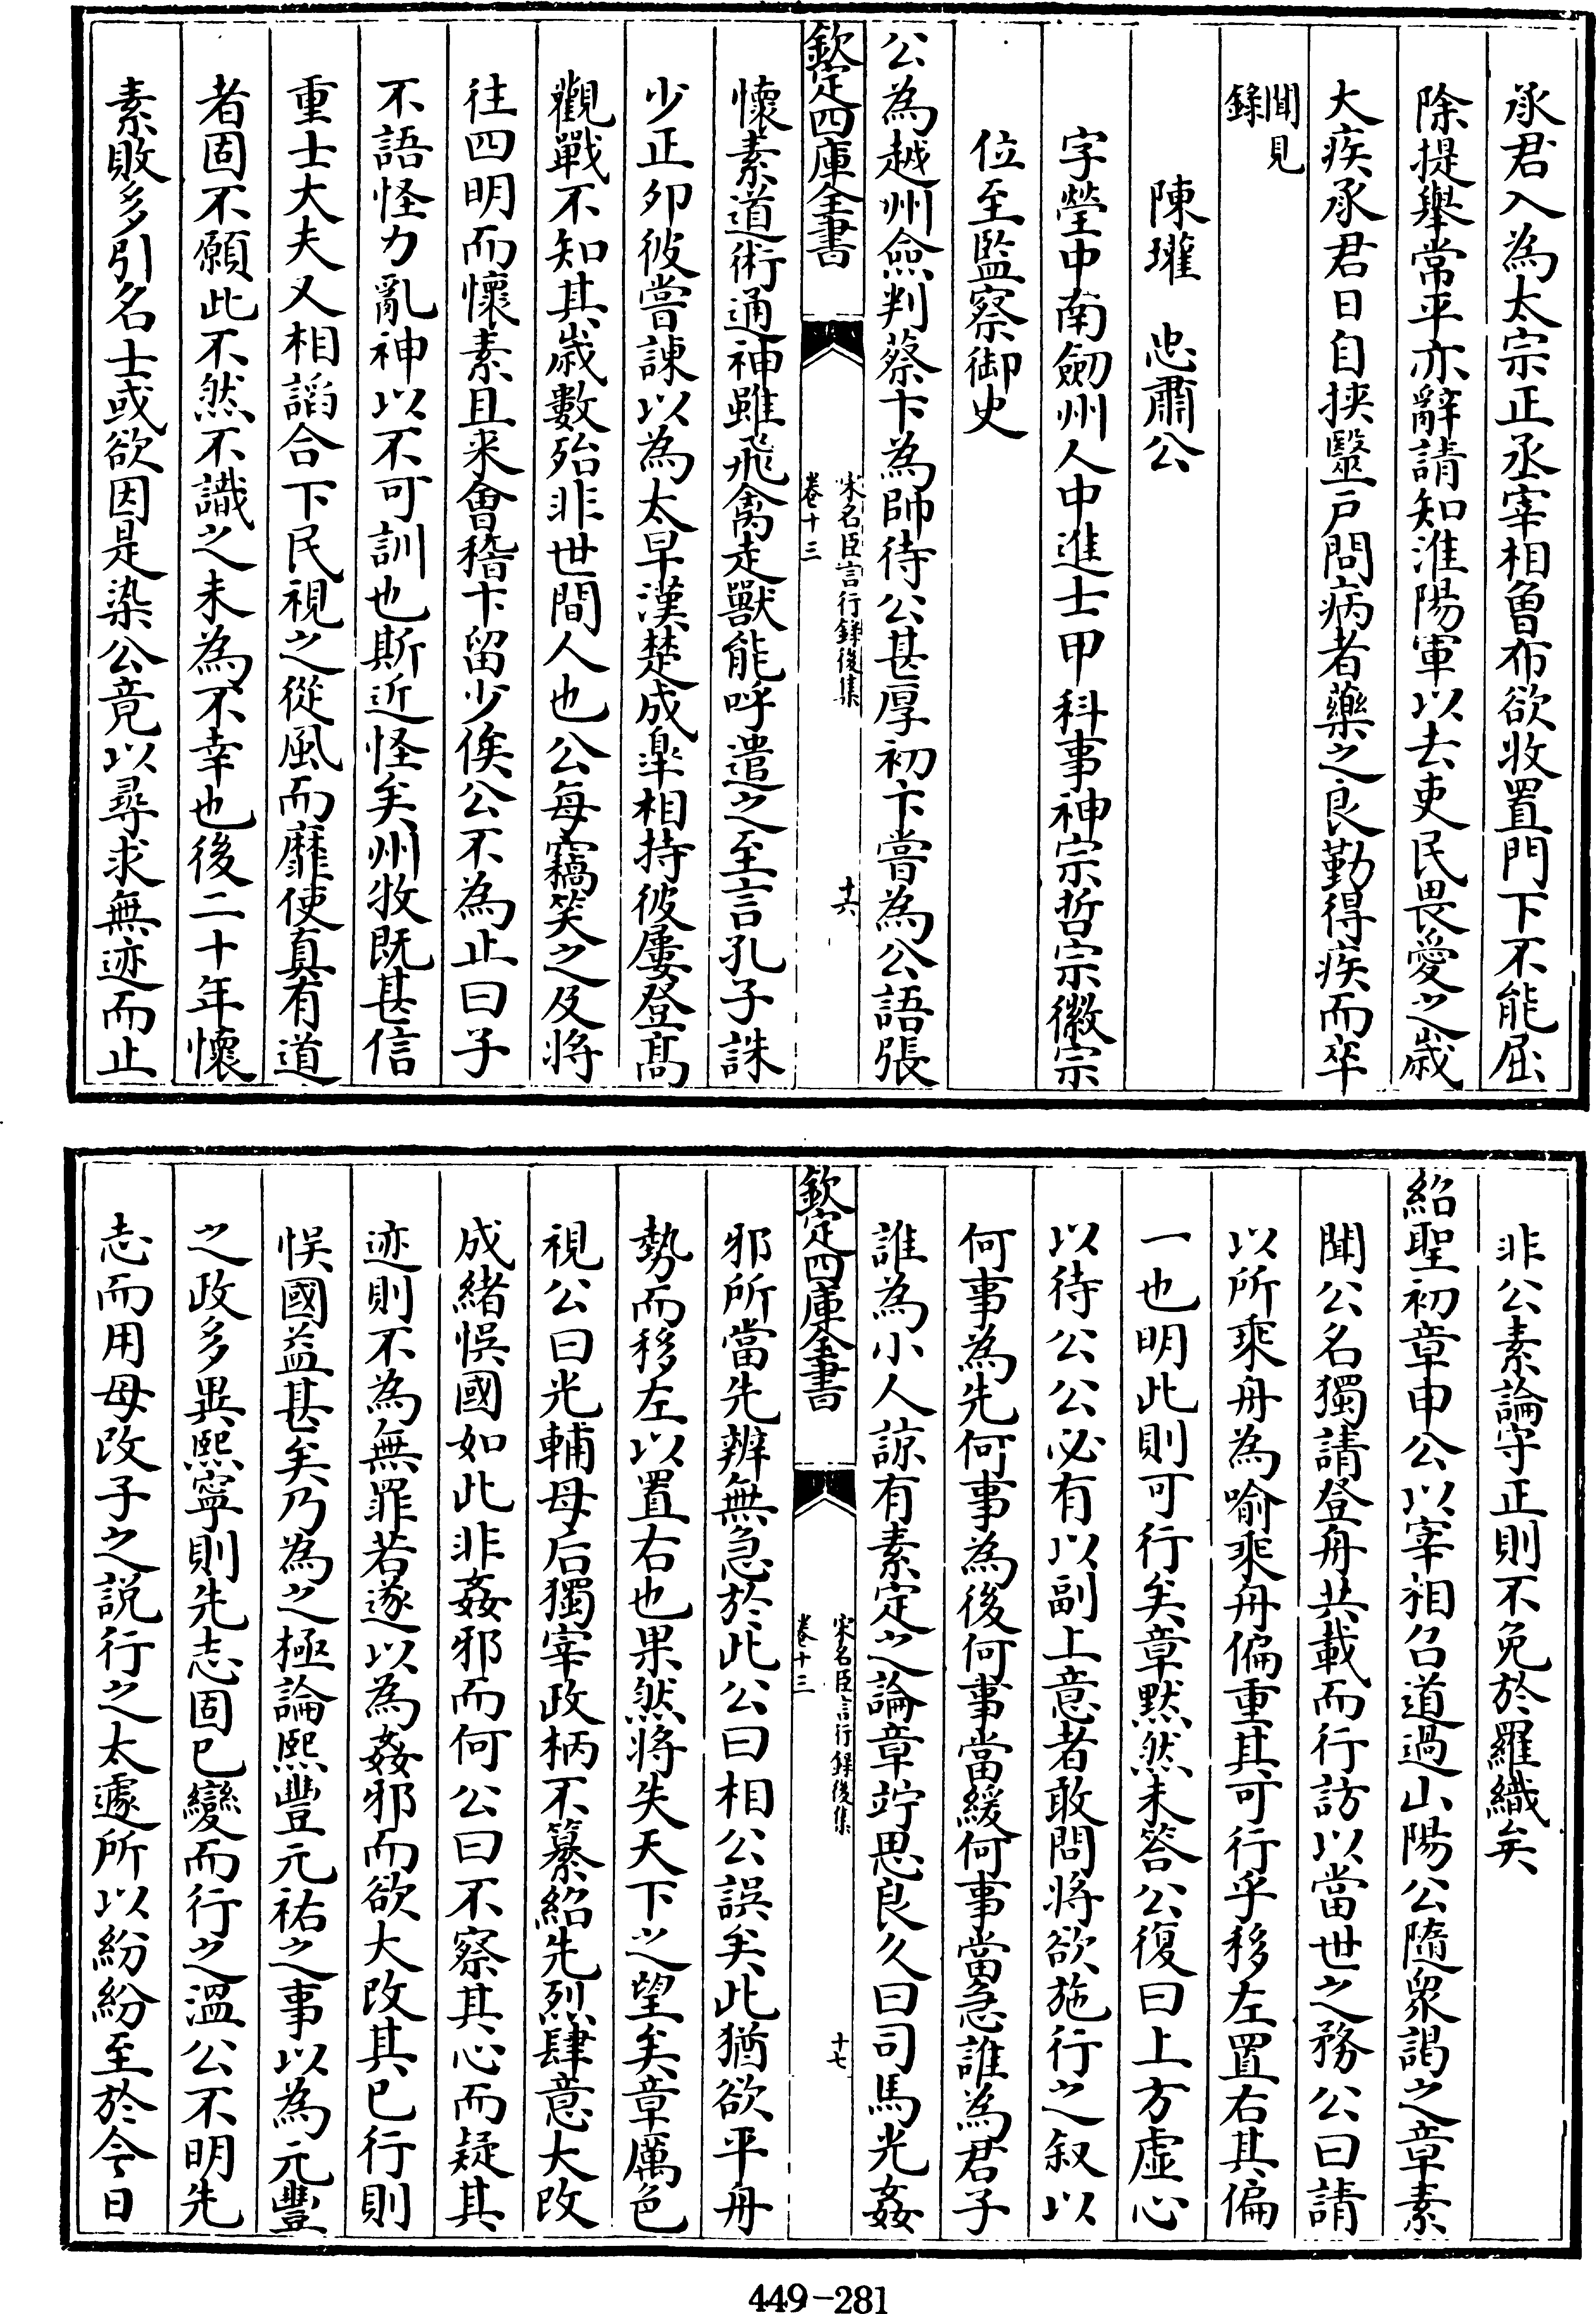 承君入為太宗正丞宰相魯布欲收置門下不能屈
除提舉常平亦辭請知淮陽軍以去吏民畏愛之歳
大疾承君日自挾毉戸問病者藥之良勤得疾而卒
聞見
錄
陳瓘　忠肅公
字瑩中南劒州人中進士甲科事神宗哲宗徽宗
位至監察御史
公為越州僉判蔡卞為帥待公甚厚初卞嘗為公語張
欽定四庫全書
宋名臣言行録後集
卷十三
十六
懷素道術通神雖飛禽走獸能呼遣之至言孔子誅
少正夘彼嘗諫以為太早漢楚成臯相持彼屢登髙
觀戰不知其歳數殆非世間人也公每竊笑之及將
往四明而懷素且来會稽卞留少俟公不為止曰子
不語怪力亂神以不可訓也斯近怪矣州牧既甚信
重士大夫又相謟合下民視之從風而靡使真有道
者固不願此不然不識之未為不幸也後二十年懷
素敗多引名士或欲因是染公竟以尋求無迹而止
非公素論守正則不免於羅織矣
紹聖初章申公以宰相召道過山陽公隨衆謁之章素
聞公名獨請登舟共載而行訪以當世之務公曰請
以所乘舟為喻乘舟偏重其可行乎移左置右其偏
一也明此則可行矣章黙然未答公復曰上方虛心
以待公公必有以副上意者敢問將欲施行之叙以
何事為先何事為後何事當緩何事當急誰為君子
誰為小人諒有素定之論章竚思良久曰司馬光姦
欽定四庫全書
宋名臣言行録後集
卷十三
十七
邪所當先辨無急於此公曰相公誤矣此猶欲平舟
勢而移左以置右也果然將失天下之望矣章厲色
視公曰光輔母后獨宰政柄不纂紹先烈肆意大改
成緒悞國如此非姦邪而何公曰不察其心而疑其
迹則不為無罪若遂以為姦邪而欲大改其已行則
悞國益甚矣乃為之極論熙豐元祐之事以為元豐
之政多異熙寧則先志固已變而行之溫公不明先
志而用母改子之説行之太遽所以紛紛至於今日
449-281